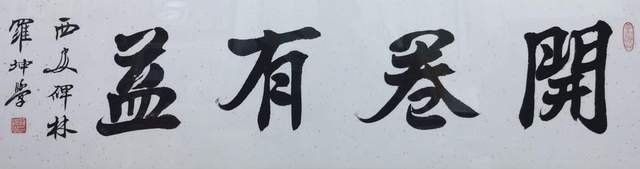 開卷有益
西安碑林
羅坤學